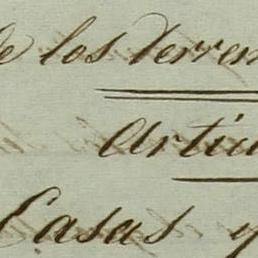 de los Terren
Artíc
Casas y